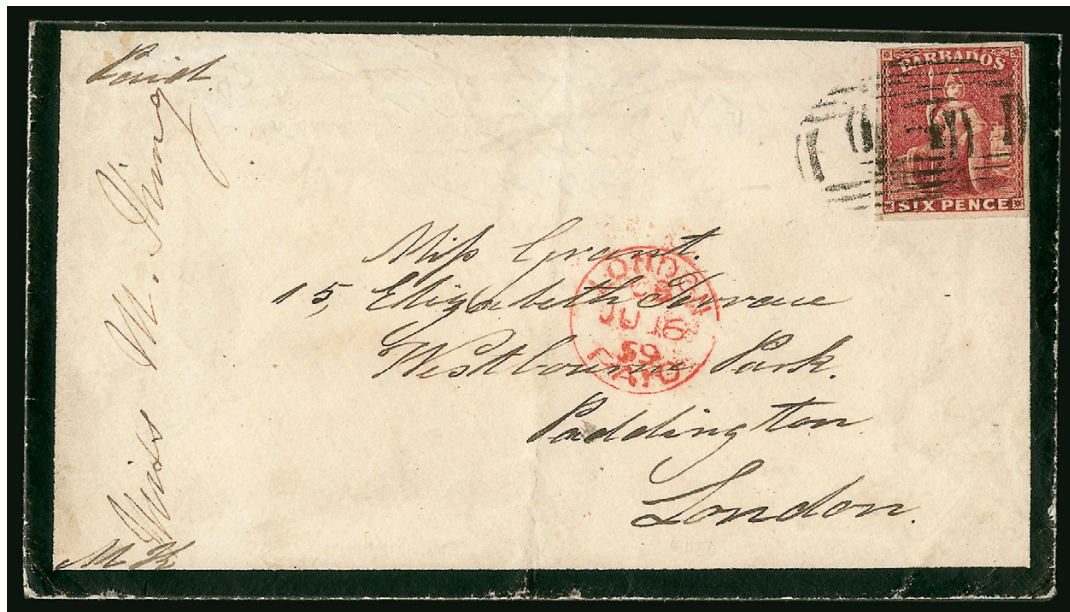 Paid.
BARBADOS
SIX PENCE
Miss Grant.
15, Elizabeth Terrace
Westbourne Park.
Paddington
London.
LONDON
JU 16
59
PAID
Miss M.